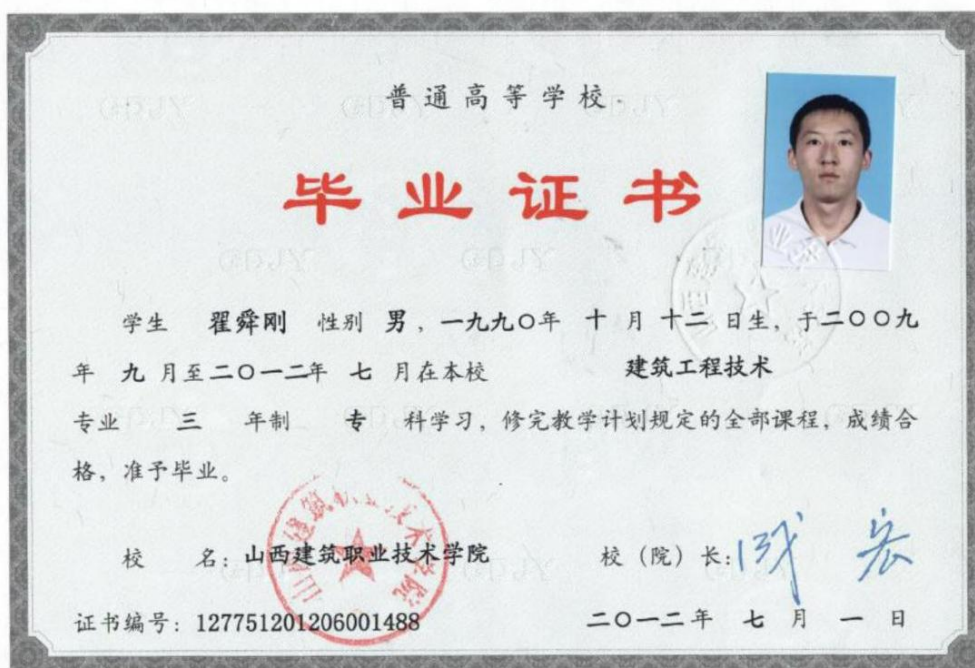 普通高等学校
毕业证书
学生 翟舜刚 性别 男，一九九〇年 十 月 十二 日生，于二〇〇九
年 九 月至二〇一二年 七 月在本校 建筑工程技术
专业 三 年制 专 科学习，修完教学计划规定的全部课程，成绩合
格，准予毕业。
校 名：山西建筑职业技术学院 校（院）长：
证书编号：127751201206001488 二〇一二年 七 月 一 日
山西建筑职业技术学院